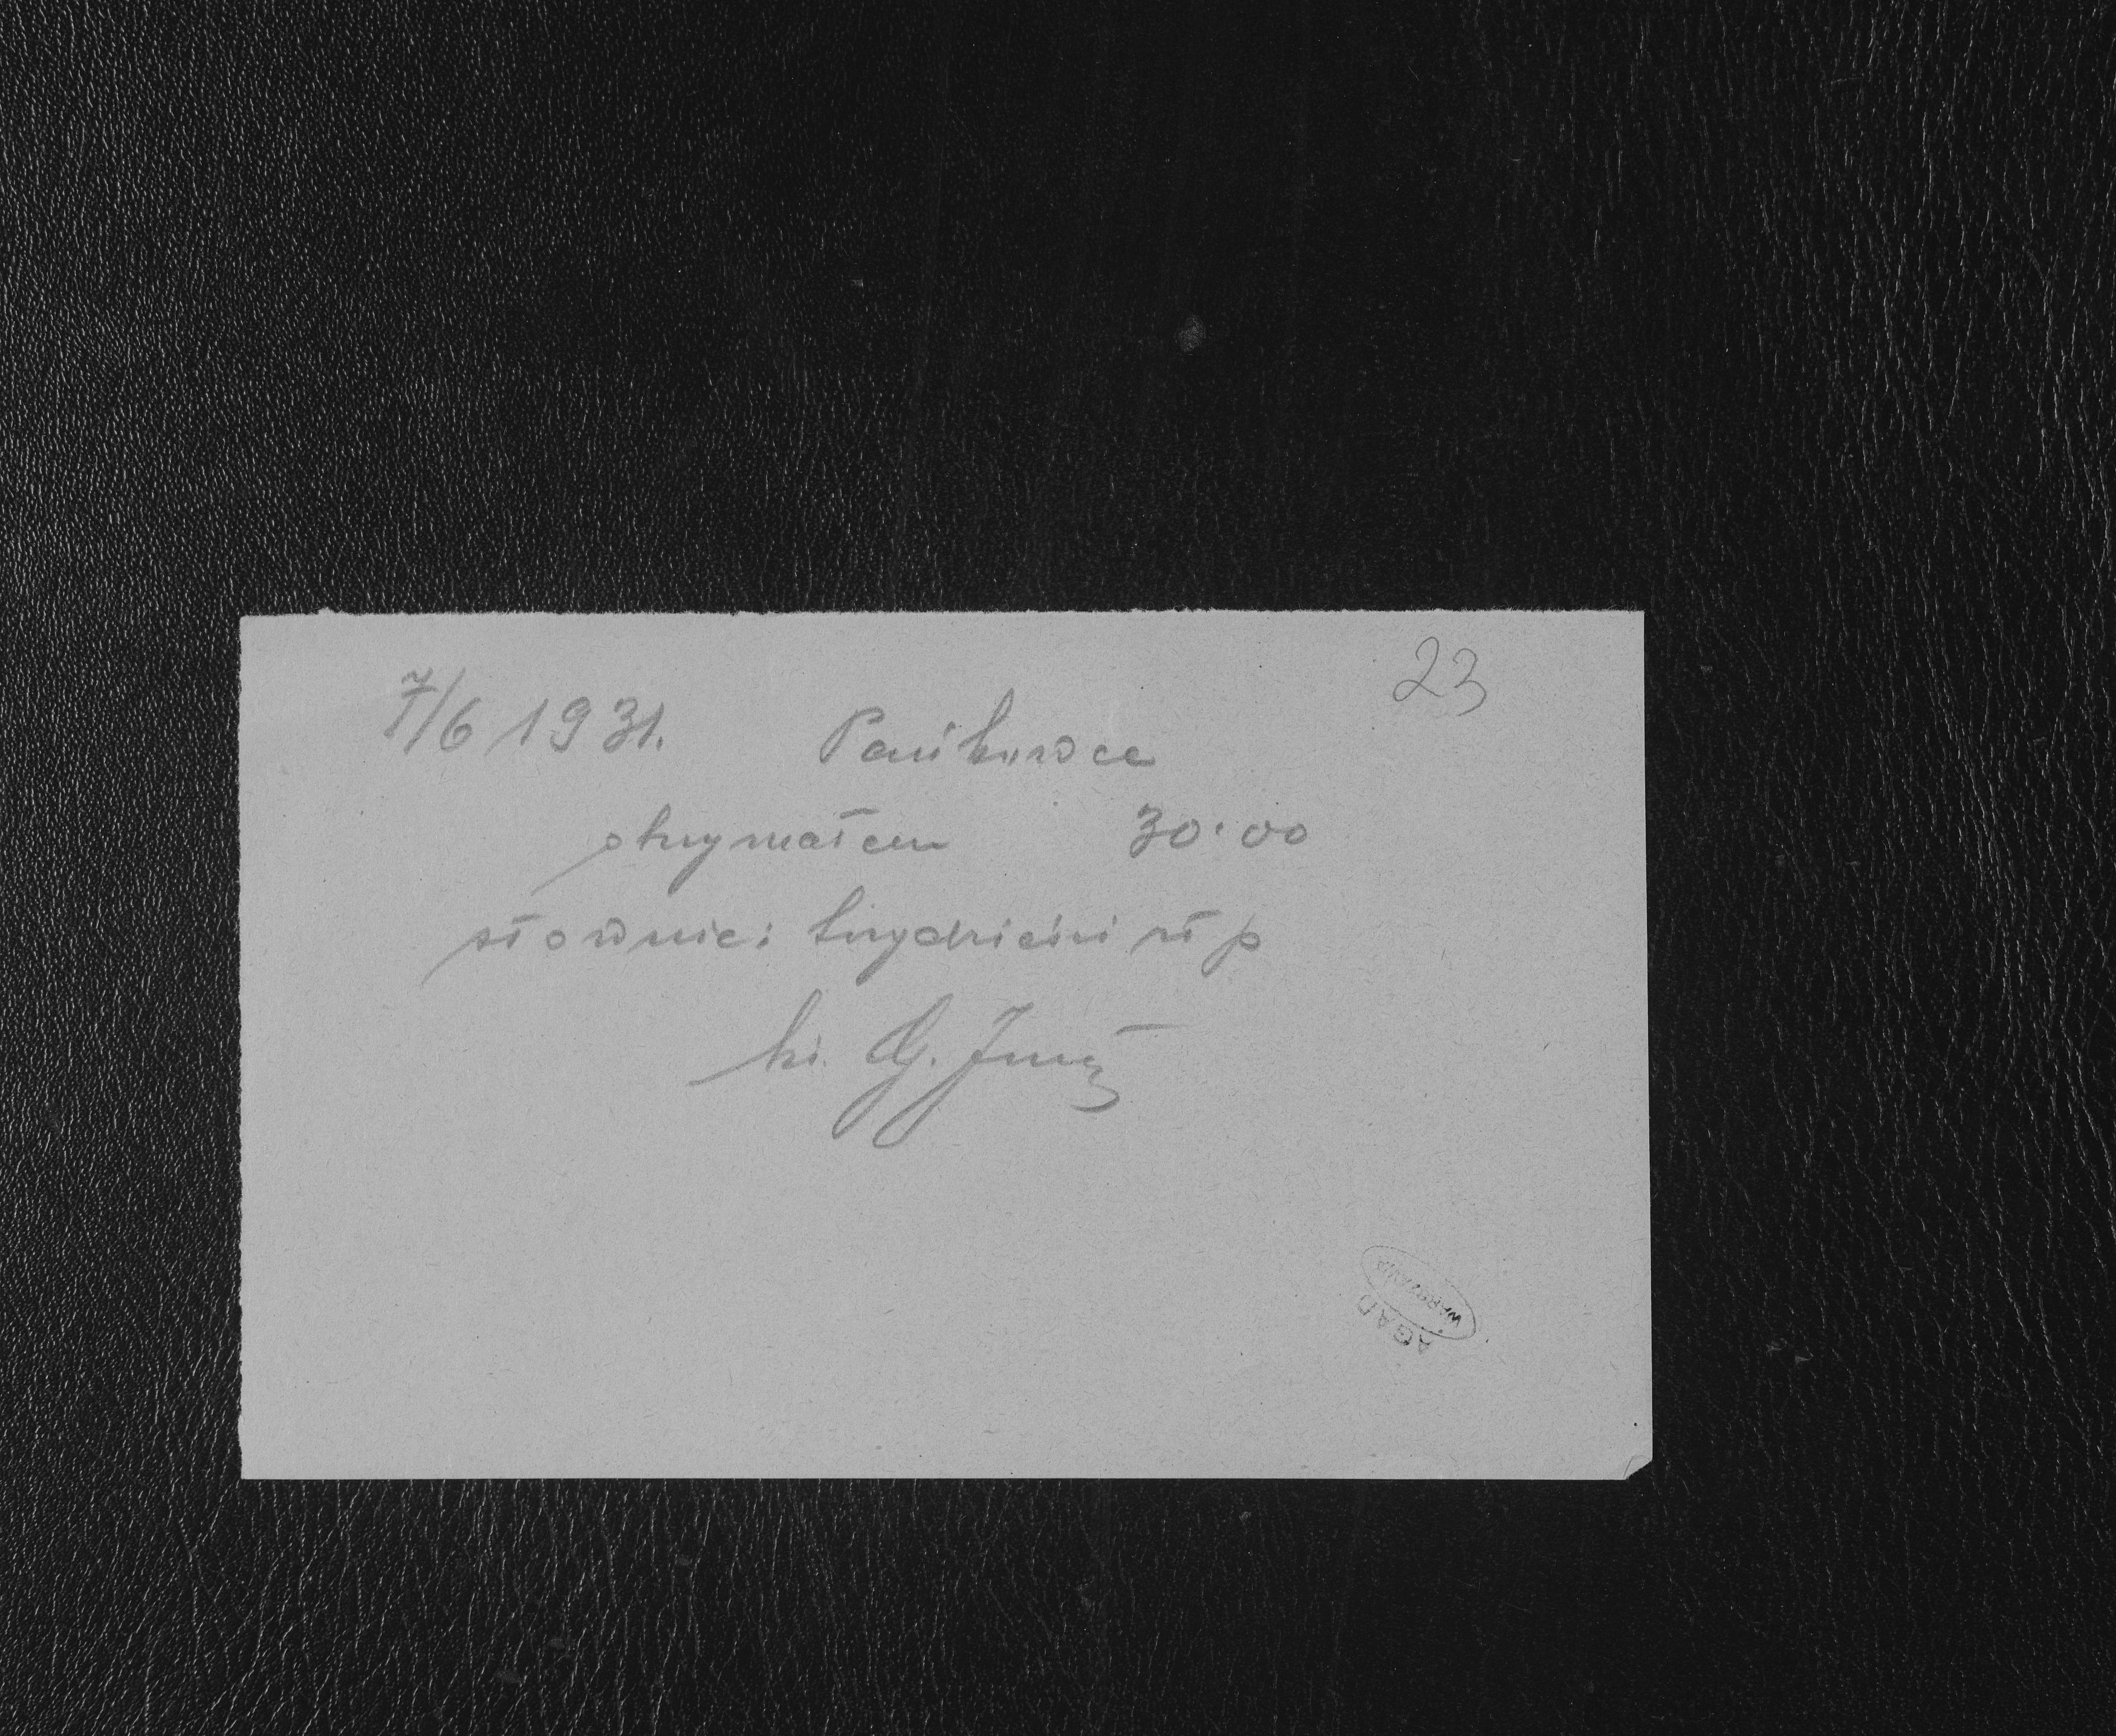 23
7/6 1931. Pańkowce
otrzymałem 30·00
słownie: trzydzieści zł p
ks. G.
AGAD
WARSZAWA